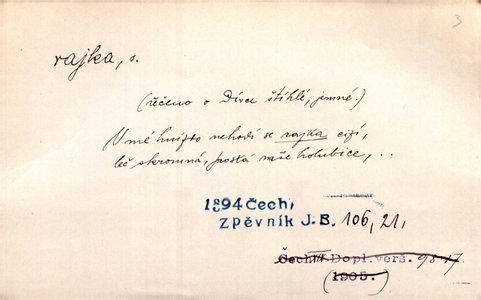 3
rajka, s.
(řečeno o Dívce štíhlé, jemné.)
V mé hnízdo nehodí se rajka cizí,
leč skromná, prostá máše holubice, ..
1894 Čech,
Zpěvník J.B. 106, 21,
Čech III. Dopl. verš. 98-17.
(1905.)